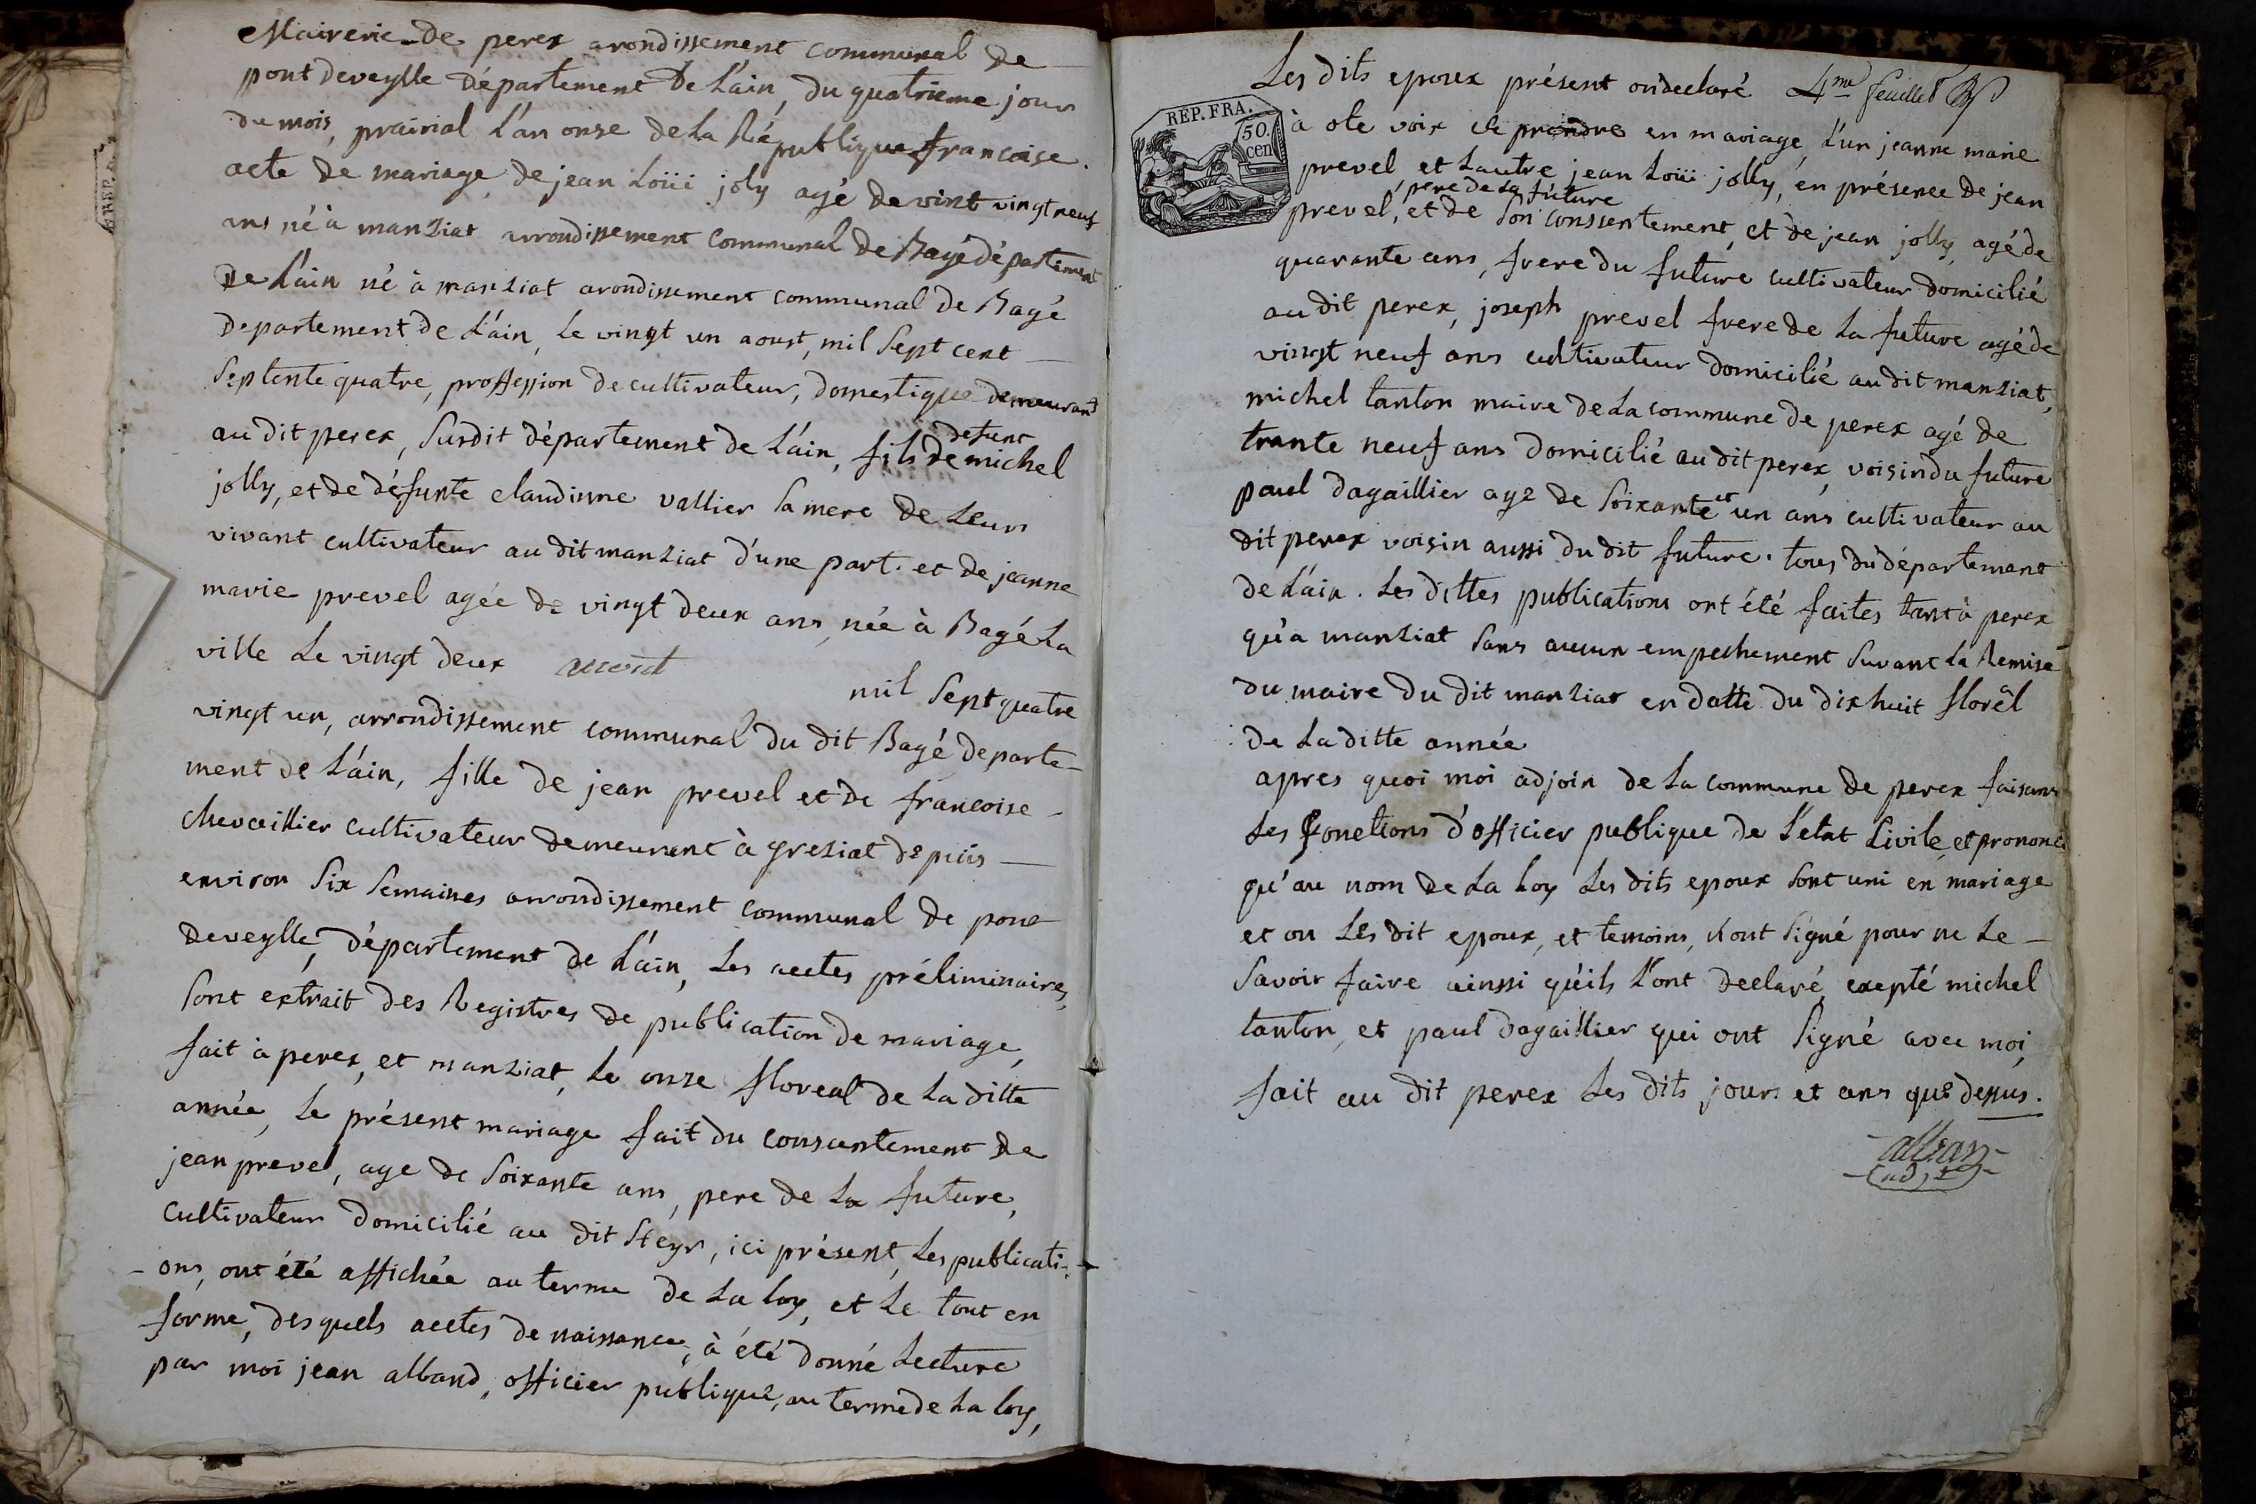 Mairerie de perex arondissement communal de
pont deveylle département de L'ain, du quatrieme jour
du mois, prairial L'an onse de La République francoise.
acte de mariage, de jean Loüi joly agé de vint vingt neuf
ans né à manziat arrondissement communal de Bagé département
de L'ain né à manziat arondissement communal de Bagé
departement de L'ain, Le vingt un aoust, mil Sept cent
Septente quatre, proffession de cultivateur, domestique demeurant
au dit perex, Susdit département de L'ain, fils de defunt michel
jolly, et de défunte claudinne vallier Sa mere de Leurs
vivant cultivateur au dit manziat d'une part. et de jeanne
marie prevel agée de vingt deux ans, née à Bagé La
ville Le vingt deux aoust mil Sept quatre
vingt un, arrondissement communal du dit Bagé departe-
ment de L'ain, fille de jean prevel et de francoise
chevaillier cultivateur demeurent à greziat depuis
environ Six Semaines arrondissement communal de pont
deveylle, département de L'ain, Les acctes préliminaires,
Sont extrait des Registres de publication de mariage,
fait à perex, et manziat, Le onze floreal de La ditte
année, Le présent mariage fait du consantement de
jean prevel, age de Soixante ans, pere de La future,
cultivateur domicilié au dit Steyr, ici présent, Les publicati-
-ons, ont été affichée au terme de La loy, et Le tout en
forme, desquels acctes de naissance, à été donné Lecture
par moi jean alband, officier publique, au terme de La loy,
Les dits epoux présent on declaré 4me feuillet
REP. FRA.
50.
cen
à ote voix de prendre en mariage, L'un jeanne marie
prevel, et Lautre jean Loüi jolly, en présence de jean
prevel, pere de La future et de Son conssentement, et de jean jolly, agé de
quarante ans, frere du future cultivateur domicilié
au dit perex, joseph prevel frere de La future agé de
vingt neuf ans cultivateur domicilié au dit manziat,
michel tanton maire de La commune de perex agé de
trante neuf ans domicilié au dit perex, voisin du future
paul dagaillier age de Soixante et un ans cultivateur au
dit perex voisin aussi du dit future. tous du département
de L'ain. Les dittes publications ont été faites tant à perex
qu'a manziat Sans aucun empechement Suvant La Remise
du maire du dit manziat en datte du dix huit floreal
de La ditte année
apres quoi moi adjoin de La commune de perex faisant
Les fonctions d'officier publique de L'etat Civile, et prononcé
qu'au nom de La Loy Les dits epoux Sont uni en mariage
et on Les dit epoux, et temoins, n'ont Signé pour ne Le
Savoir faire ainssi qu'ils L'ont declaré, exepté michel
tanton, et paul dagaillier qui ont Signé avec moi,
fait au dit perex Les dits jours et ans que dessus.